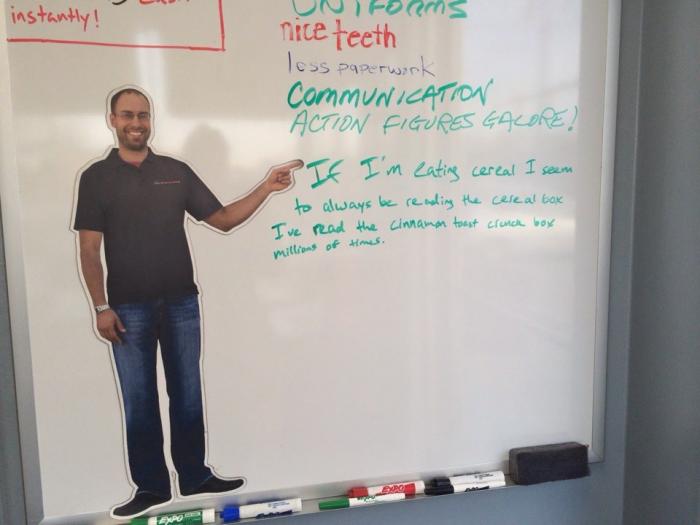 instantly!
UNIFORMS
nice teeth
less paperwork
COMMUNICATION
ACTION FIGURES GALORE!
If I'm eating cereal I seem
to always be reading the cereal box
I've read the cinnamon toast crunch box
millions of times.
EXPO
EXPO